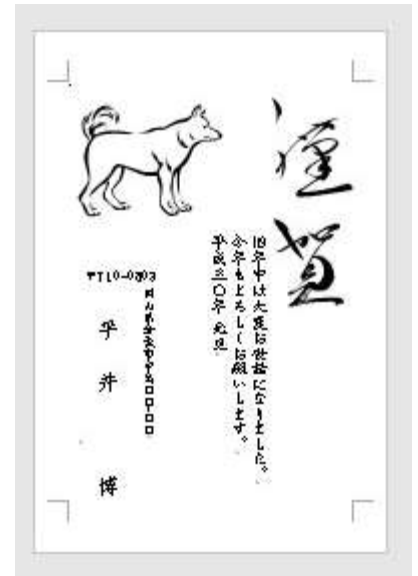 謹賀
旧年中は大変お世話になりました。
今年もよろしくお願いします。
平成三〇年 元旦
平井 博